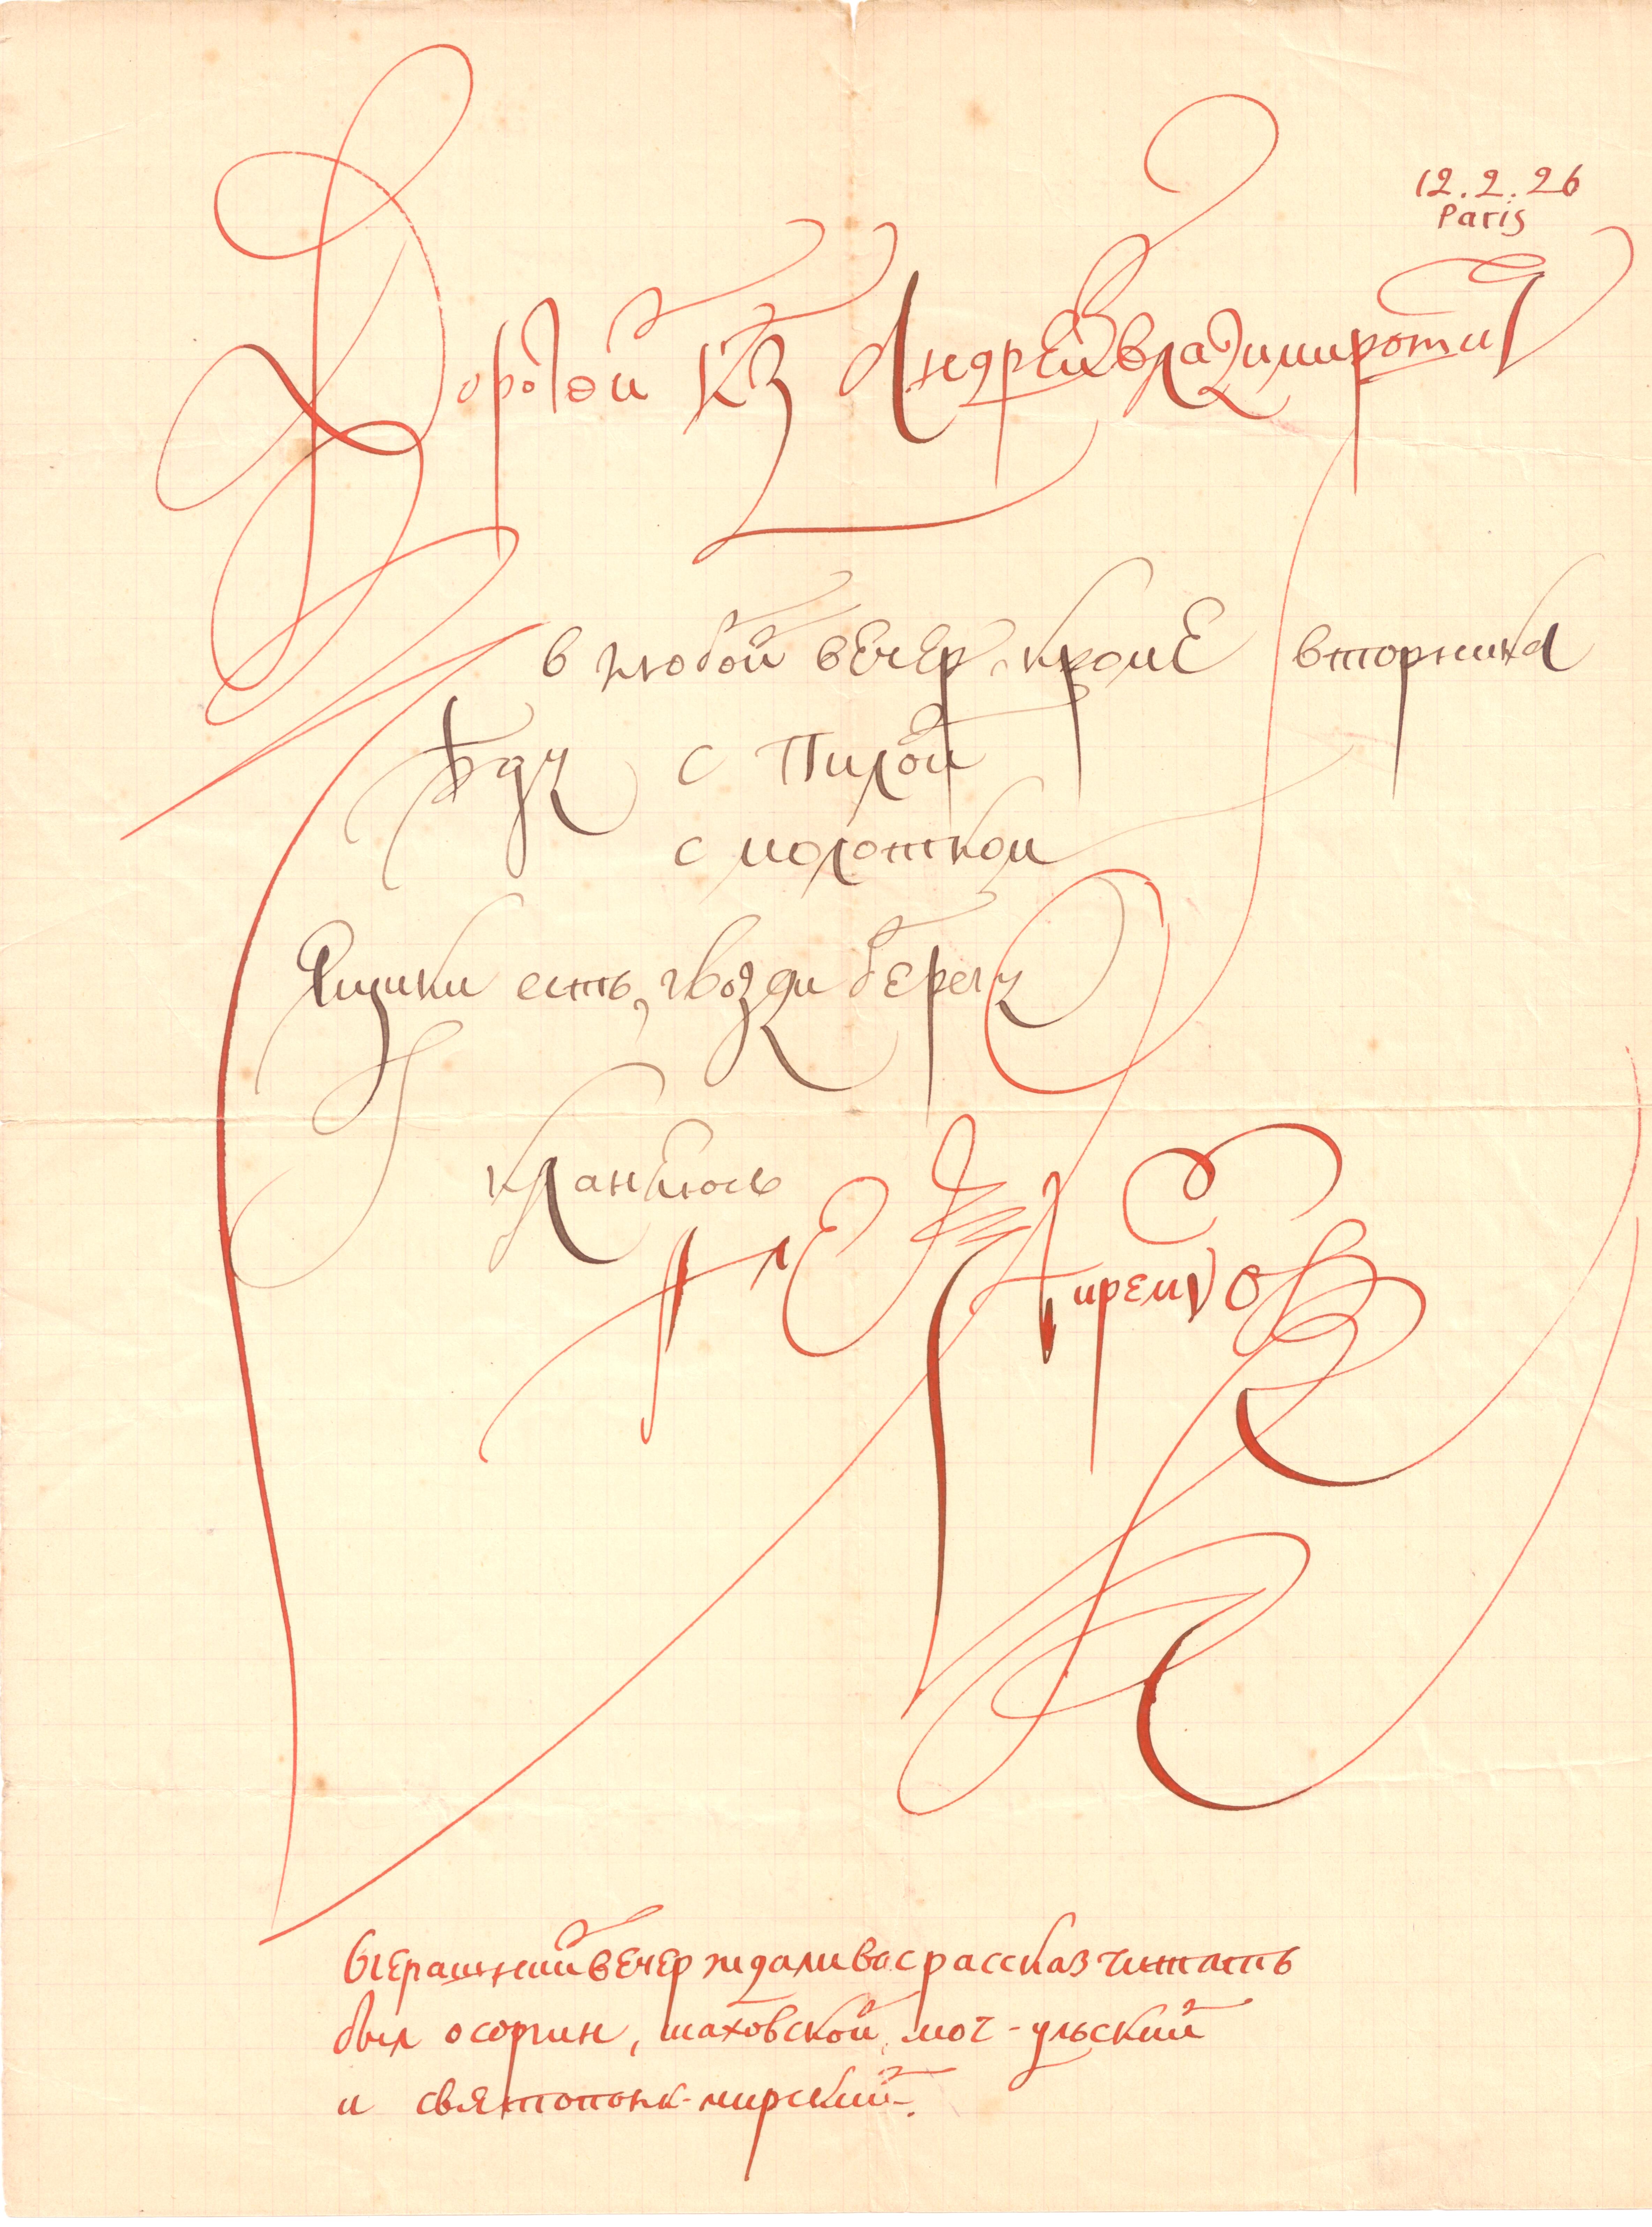 12.2.26
Paris
Дорогой кз Андрей Владимироти
в любой вечер, кроме вторника
ѣду с Пилой
с молотком
Ящики есть, гвозди берегу
Кланеюсь
Алексей Ремизов
вчерашний вечер ждали вас рассказ читать
был осоргин, шаховской, моч-ульский
и святополк-мирский.